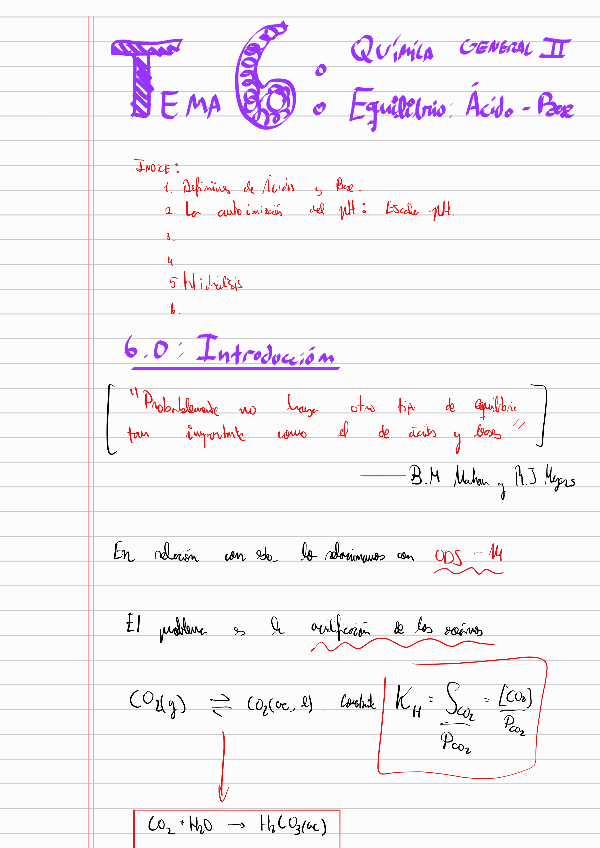 TEMA 6:
QUÍMICA GENERAL II
Equilibrio: Ácido - Base
ÍNDICE:
1. Definiciones de Ácidos y Base.
2. La autoionización del pH: Escala pH.
3.
4.
5. Hidrólisis
6.
6.0: Introducción
"Probablemente no haya otro tipo de equilibrio
tan importante como el de ácidos y bases"
— B.M Mahan y R.J Meyers
En relación con eso lo relacionamos con ODS - 14
El problema es la acidificación de los océanos
CO₂(g) ⇌ CO₂(ac, l) constante K_H = S_CO₂ / P_CO₂ = [CO₂] / P_CO₂
CO₂ + H₂O → H₂CO₃(ac)